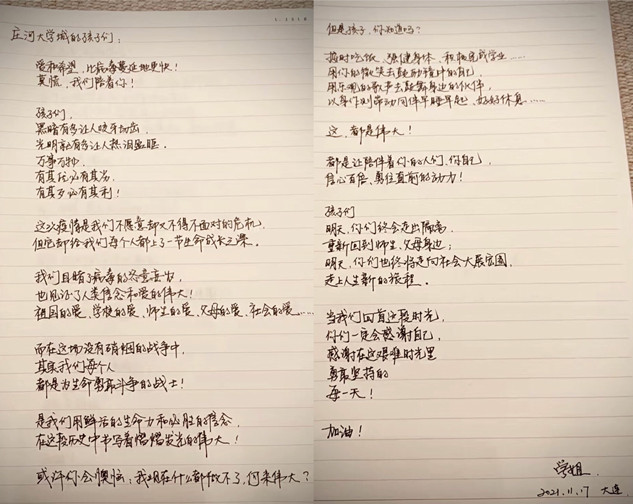 庄河大学城的孩子们：
爱和希望，比病毒蔓延地更快！
莫慌，我们陪着你！
孩子们，
黑暗有多让人咬牙切齿，
光明就有多让人热泪盈眶。
万事万物，
有其优必有其劣，
有其歹必有其利！
这次疫情是我们不愿意却又不得不面对的危机，
但它却给我们每个人都上了一节生命成长之课。
我们目睹了病毒的恣意妄为，
也见证了人类信念和爱的伟大！
祖国的爱、学校的爱、师生的爱、父母的爱、社会的爱……
而在这场没有硝烟的战争中，
其实我们每个人
都是为生命勇敢斗争的战士！
是我们用鲜活的生命力和必胜的信念，
在这段历史中书写着熠熠发光的伟大！
或许你会懊恼：我现在什么都做不了，何来伟大？
但是孩子，你知道吗？
按时吃饭、强健身体、积极完成学业……
用你的微笑去鼓励镜中的自己，
用乐观的歌声去鼓舞身边的伙伴，
以身作则带动同伴早睡早起、好好休息……
这，都是伟大！
都是让陪伴着你的人们、你自己，
信心百倍、勇往直前的动力！
孩子们
明天，你们终会走出隔离，
重新回到师生、父母身边；
明天，你们也终将走向社会大展宏图，
走上人生新的旅程。
当我们回首这段时光，
你们一定会感谢自己，
感谢在这艰难时光里
勇敢坚持的
每一天！
加油！
学姐
2021.11.17 大连